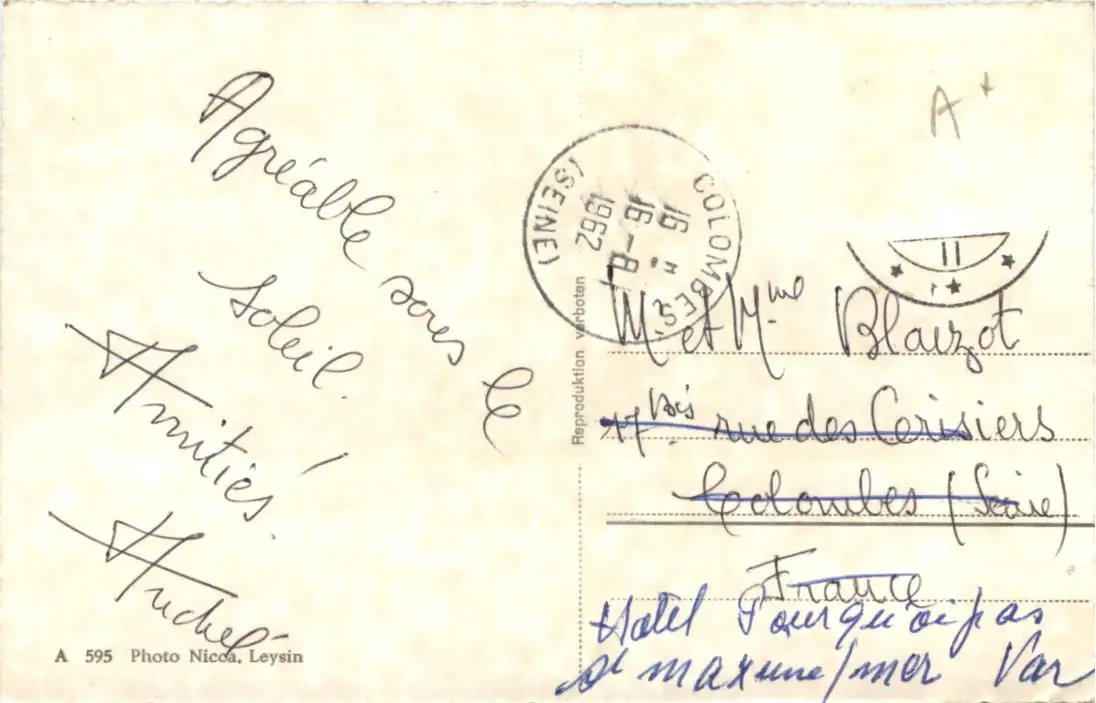 Agréable sous le
soleil.
Amitiés
A 595 Photo Nicca, Leysin
Reproduktion verboten
COLOMBES
(SEINE)
16 H
16 - 8
1962
A+
M. et Mme Blaizot
17 bis rue des Cerisiers
Colombes (Seine)
France
Hotel Pourquoi pas
St maxime/mer Var